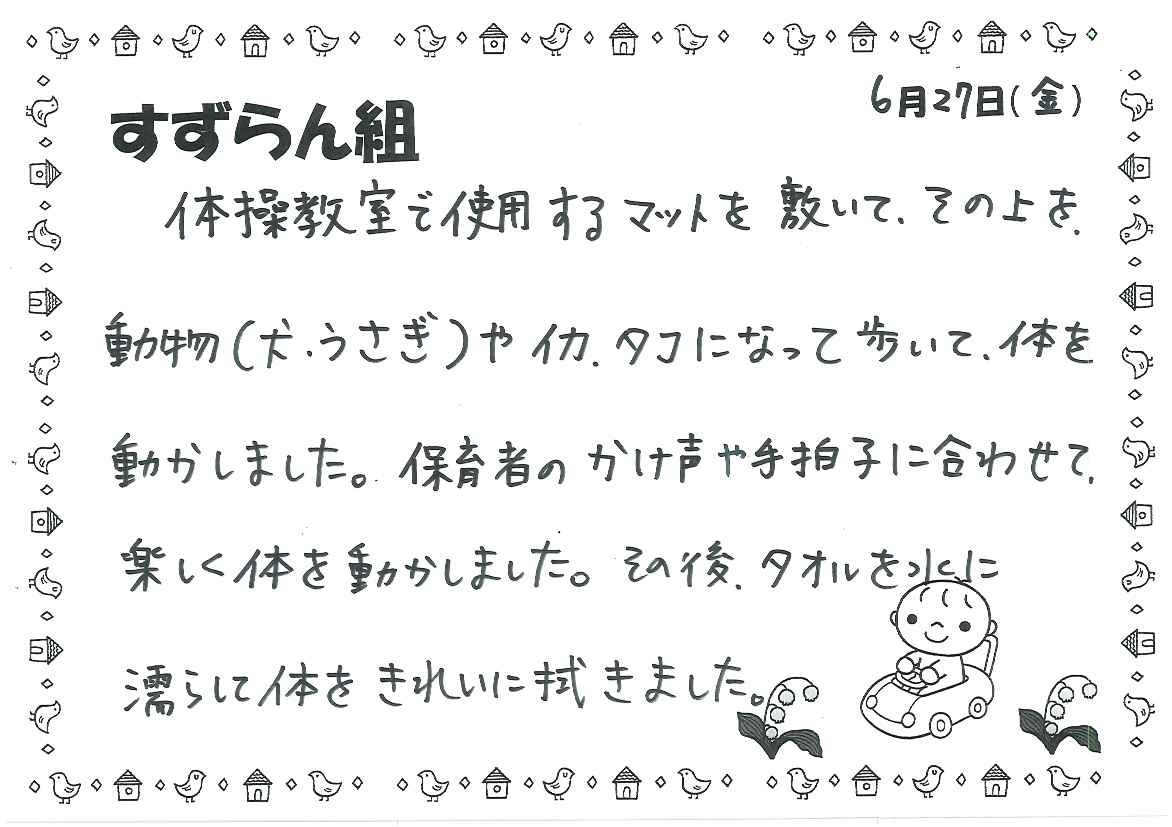 6月27日(金)
すずらん組
体操教室で使用するマットを敷いて、その上を、
動物(犬・うさぎ)やイカ、タコになって歩いて、体を
動かしました。保育者のかけ声や手拍子に合わせて、
楽しく体を動かしました。その後、タオルを水に
濡らして体をきれいに拭きました。